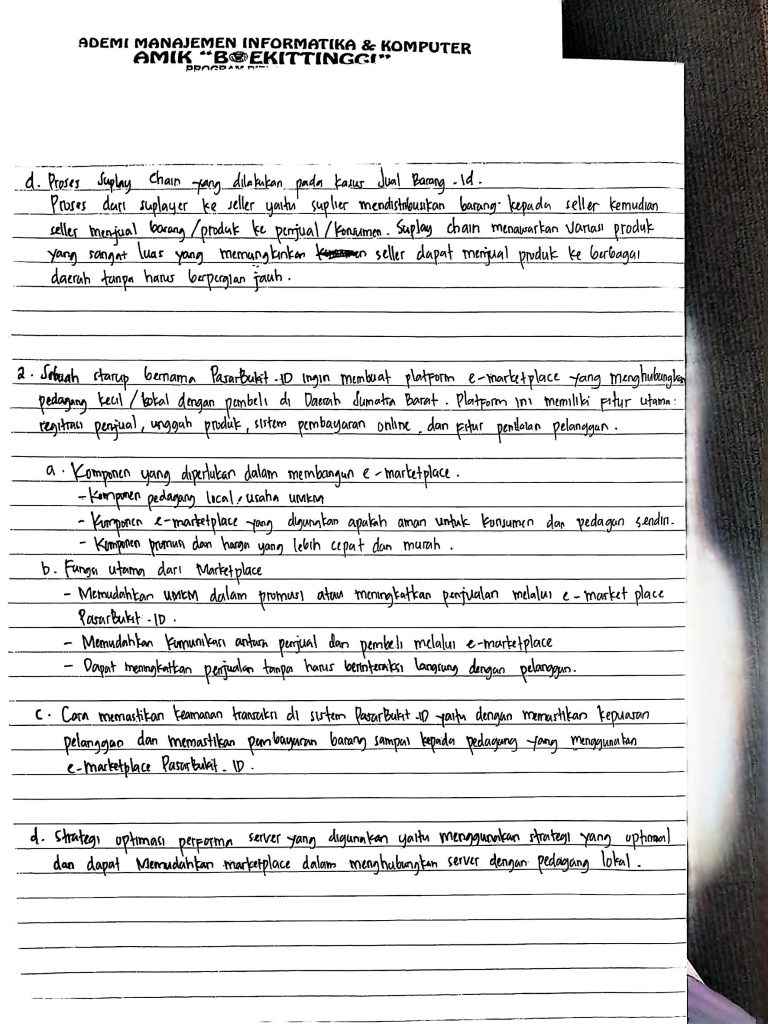 ADEMI MANAJEMEN INFORMATIKA & KOMPUTER
AMIK "BOEKITTINGGI"
PROGRAM
d. Proses Suplay Chain yang dilakukan pada kasus Jual Barang.Id.
Proses dari suplayer ke seller yaitu suplier mendistribusikan barang kepada seller kemudian
seller menjual barang/produk ke penjual/konsumen. Suplay chain menawarkan variasi produk
yang sangat luas yang memungkinkan seller dapat menjual produk ke berbagai
daerah tanpa harus berpergian jauh.
2. Sebuah starup bernama PasarBukit-ID ingin membuat platform e-marketplace yang menghubungkan
pedagang kecil/lokal dengan pembeli di Daerah Sumatra Barat. Platform ini memiliki fitur utama:
registrasi penjual, unggah produk, sistem pembayaran online, dan fitur penilaian pelanggan.
a. Komponen yang diperlukan dalam membangun e-marketplace.
- Komponen pedagang local, usaha UMKM
- Komponen e-marketplace yang digunakan apakah aman untuk konsumen dan pedagan sendiri.
- Komponen promosi dan harga yang lebih cepat dan murah.
b. Fungsi utama dari Marketplace
- Memudahkan UMKM dalam promosi atau meningkatkan penjualan melalui e-market place
PasarBukit-ID.
- Memudahkan komunikasi antara penjual dan pembeli melalui e-marketplace
- Dapat meningkatkan penjualan tanpa harus berinteraksi langsung dengan pelanggan.
c. Cara memastikan keamanan transaksi di sistem PasarBukit-ID yaitu dengan memastikan kepuasan
pelanggan dan memastikan pembayaran barang sampai kepada pedagang yang menggunakan
e-marketplace PasarBukit-ID.
d. Strategi optimasi performa server yang digunakan yaitu menggunakan strategi yang optimal
dan dapat Memudahkan marketplace dalam menghubungkan server dengan pedagang lokal.